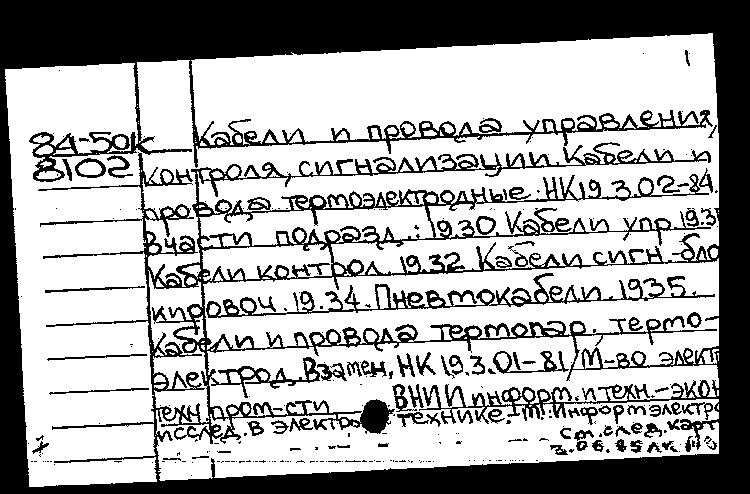 1
84-50к Кабели и провода управления,
8102 контроля, сигнализации. Кабели и
провода термоэлектродные: НК 19.3.02-84.
В части подразд.: 19.30. Кабели упр. 19.3
Кабели контрол. 19.32. Кабели сигн.-бло
кировоч. 19.34. Пневмокабели. 19.35.
Кабели и провода термопар. термо-
электрод. Взамен. НК 19.3.01-81/М-во элект
техн пром-сти ВНИИ информ. и техн.-экон
исслед. в электротехнике. [М]: Информэлектро
См. след. карт
3.06.85